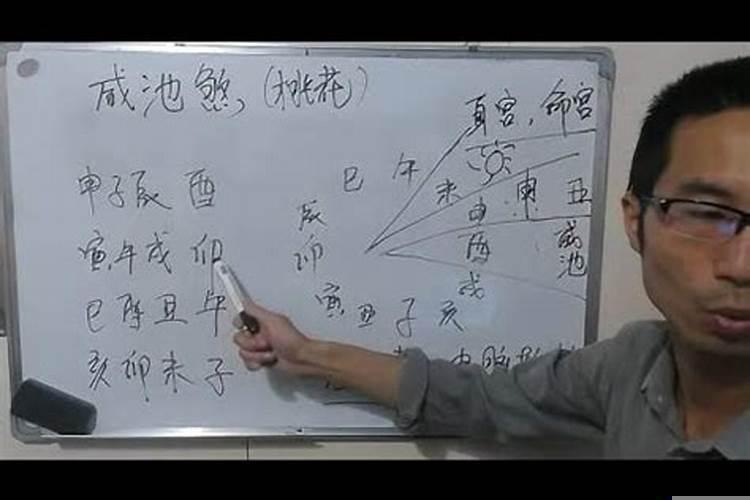 咸池煞，(桃花)
申子辰 酉
寅午戌 卯
巳酉丑 午
亥卯未 子
巳 午 未 申 酉 戌
辰 卯 寅 丑 子 亥
命宫
申 丑
咸池